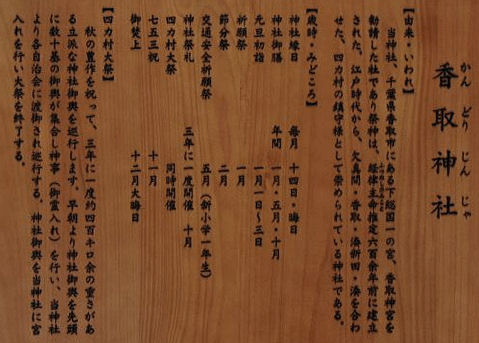 かんどりじんじゃ
香取神社
【由来・いわれ】
当神社、千葉県香取市にある下総国一の宮、香取神宮を
勧請した社であり祭神は、経津主命推定六百余年前に建立
された。江戸時代から、欠真間・香取・湊新田・湊を合わ
せた、四カ村の鎮守様として崇められている神社である。
【歳時・みどころ】
神社縁日 毎月 十四日・晦日
神社御膳 年間 一月・五月・十月
元旦初詣 一月一日〜三日
祈願祭 一月
節分祭 二月
交通安全祈願祭 五月(新小学一年生)
神社祭礼 三年に一度開催 十月
四カ村大祭 同時開催
七五三祝 十一月
御焚上 十二月大晦日
【四カ村大祭】
秋の豊作を祝って、三年に一度約四百キロ余の重さがあ
る立派な神社御輿を巡行します。早朝より神社御輿を先頭
に数十基の御輿が集合し神事(御霊入れ)を行い、当神社
より各自治会に渡御され巡行する。神社御輿を当神社に宮
入れを行い大祭を終了する。